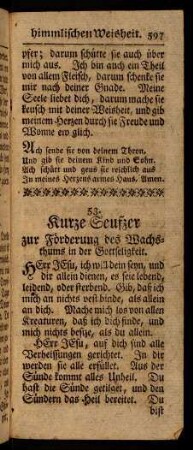 himmlischen Weisheit. 597
pfer; darum schütte sie auch über
mich aus. Ich bin auch ein Theil
von allem Fleisch, darum schenke sie
mir nach deiner Gnade. Meine
Seele liebet dich, darum mache sie
keusch mit deiner Weisheit, und gib
meinem Herzen durch sie Freude und
Wonne ewiglich.
Ach sende sie von deinem Thron,
Und gib sie deinem Kind und Sohn.
Ach schütt und geus sie reichlich aus
In meines Herzens armes Haus. Amen.
53.
Kurze Seufzer
zur Förderung des Wachs-
thums in der Gottseligkeit.
HErr JEsu, ich will dein seyn, und
dir allein dienen, es seie lebend,
leidend, oder sterbend. Gib, daß ich
mich an nichts vest binde, als allein
an dich. Mache mich los von allen
Kreaturen, daß ich dich finde, und
mich nichts besitze, als du allein.
HErr JEsu, auf dich sind alle
Verheissungen gerichtet. In dir
werden sie alle erfüllet. Aus der
Sünde kommt alles Unheil. Du
hast die Sünde getilget, und den
Sündern das Heil bereitet. Du
bist